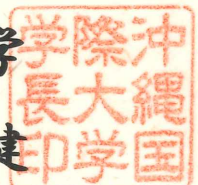 沖縄国
際大学
学長印
学
建